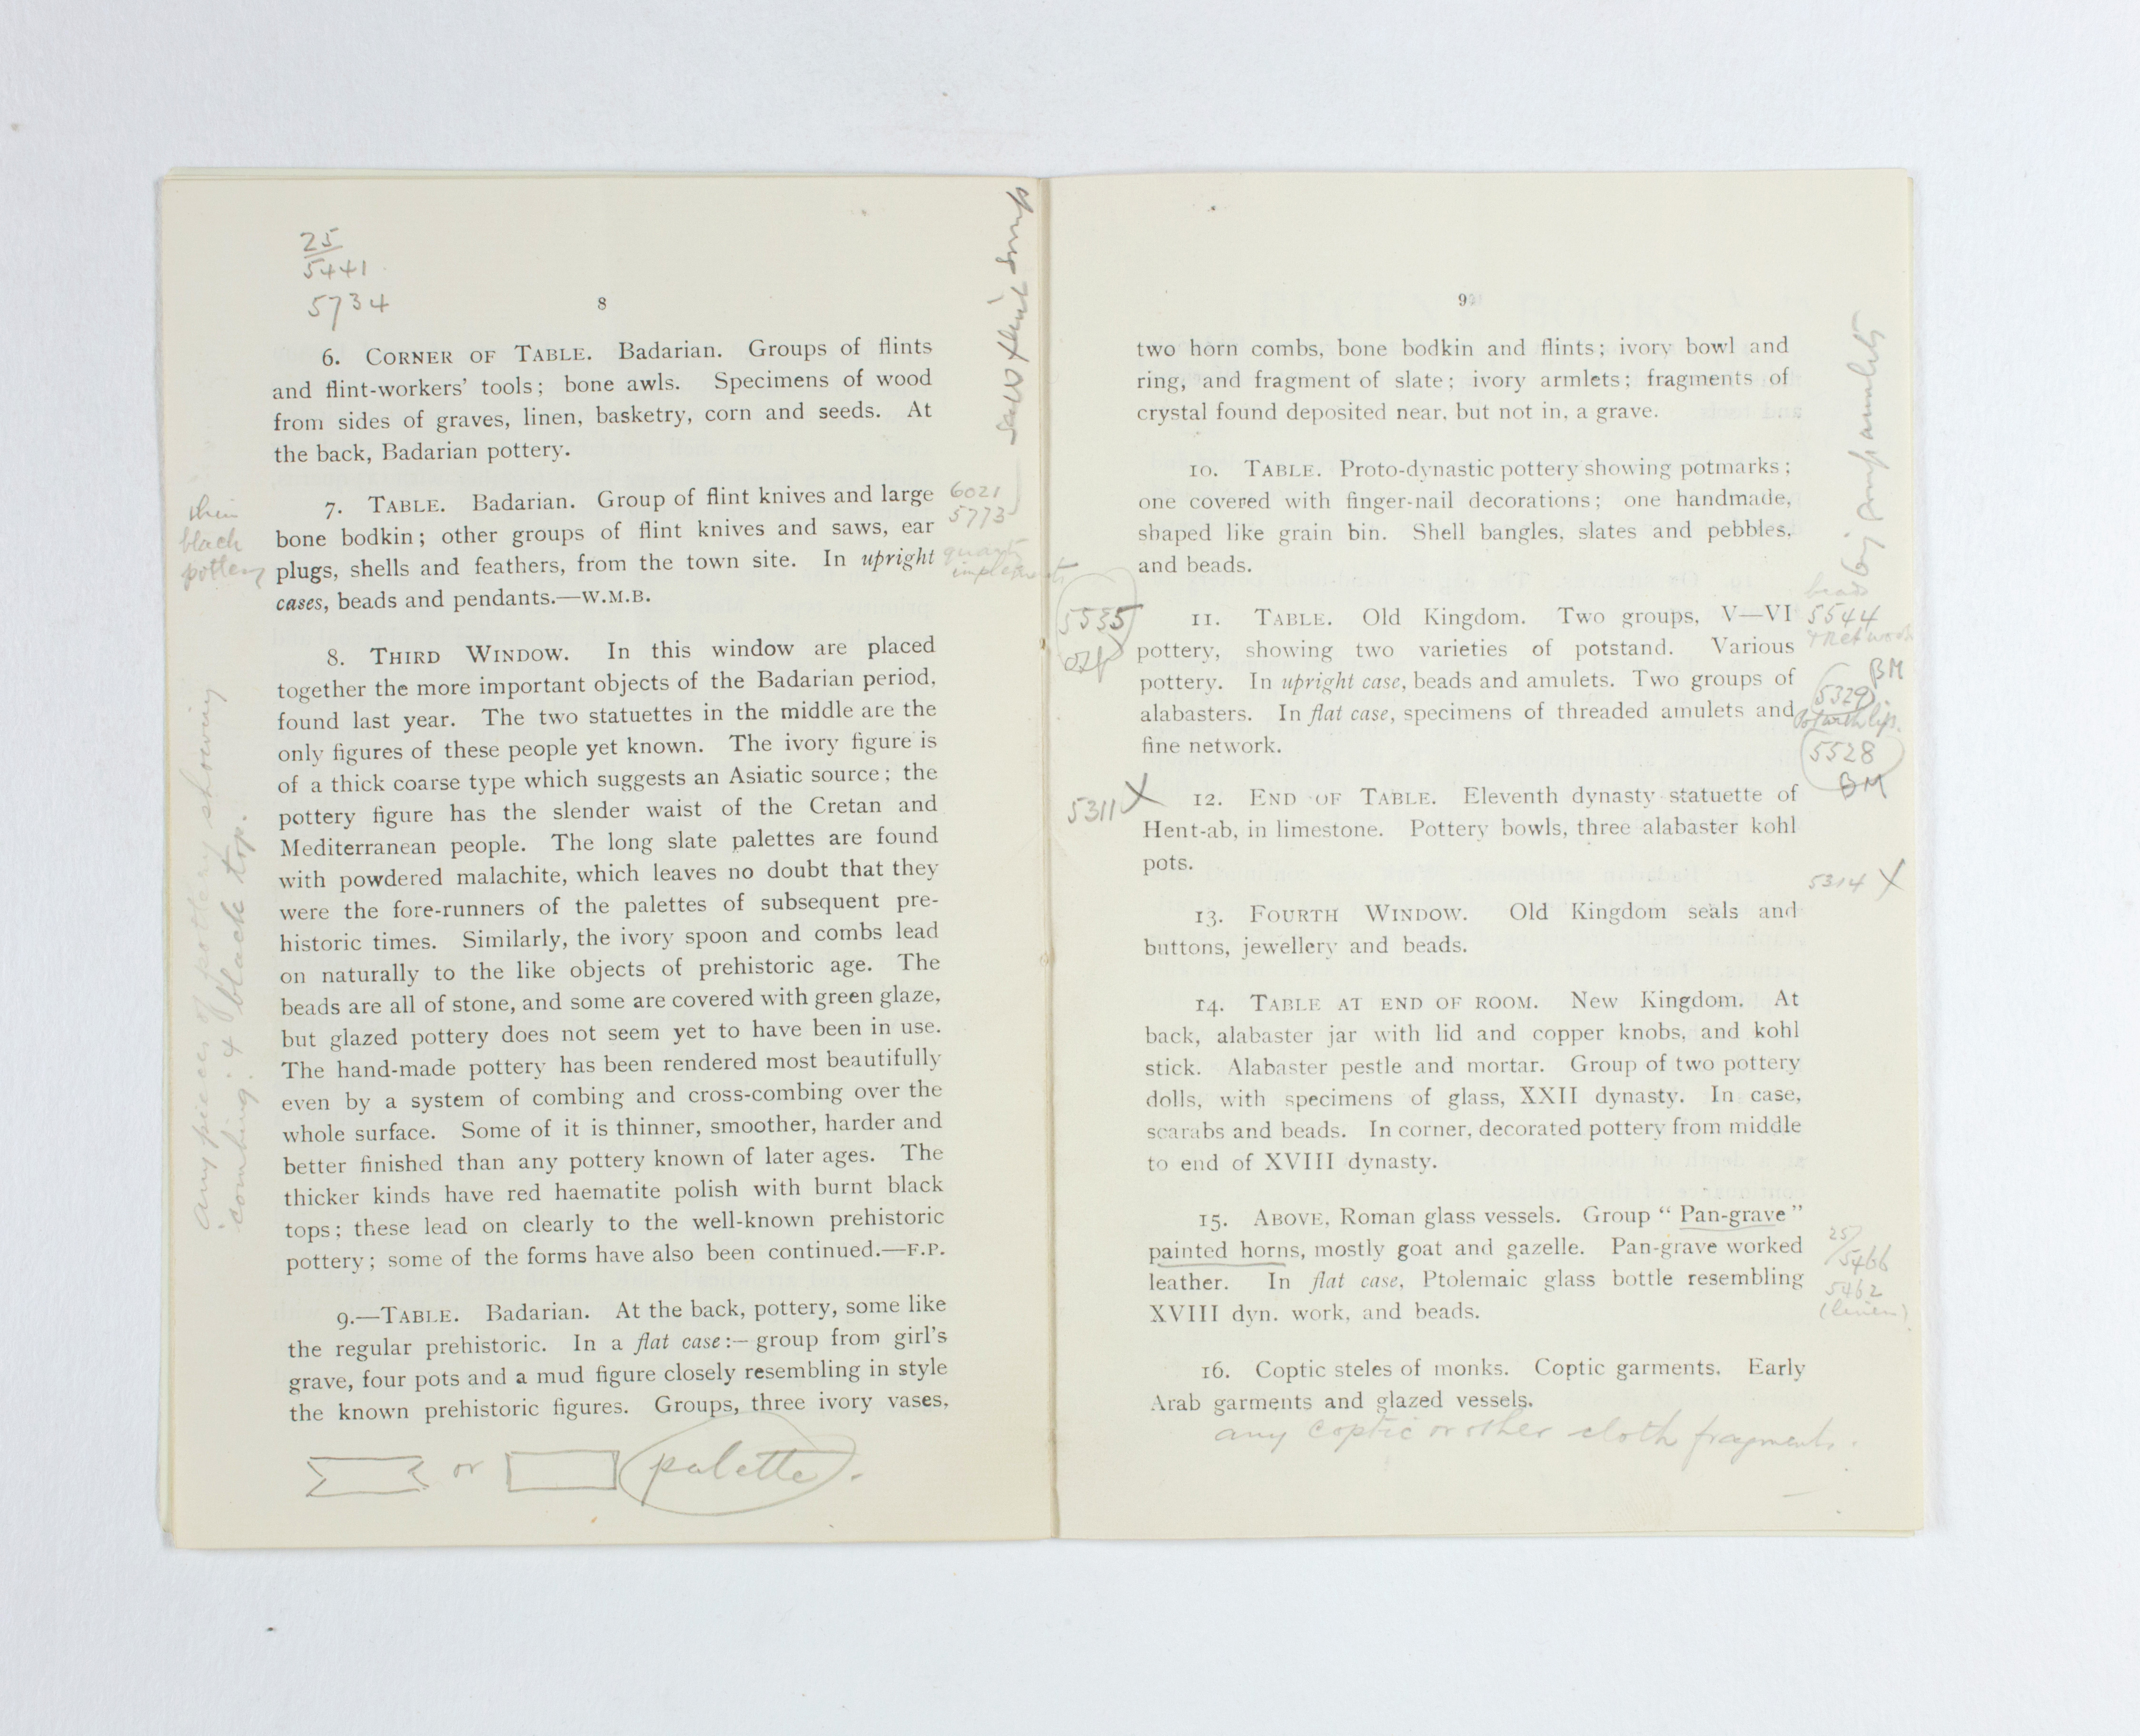 25
5441
5734
8
6. CORNER OF TABLE. Badarian. Groups of flints
and flint-workers' tools; bone awls. Specimens of wood
from sides of graves, linen, basketry, corn and seeds. At
the back, Badarian pottery.
7. TABLE. Badarian. Group of flint knives and large
bone bodkin; other groups of flint knives and saws, ear
plugs, shells and feathers, from the town site. In upright
cases, beads and pendants.—W.M.B.
6021
5773
quartz
implements
thin
black
pottery
saw flint
8. THIRD WINDOW. In this window are placed
together the more important objects of the Badarian period,
found last year. The two statuettes in the middle are the
only figures of these people yet known. The ivory figure is
of a thick coarse type which suggests an Asiatic source; the
pottery figure has the slender waist of the Cretan and
Mediterranean people. The long slate palettes are found
with powdered malachite, which leaves no doubt that they
were the fore-runners of the palettes of subsequent pre-
historic times. Similarly, the ivory spoon and combs lead
on naturally to the like objects of prehistoric age. The
beads are all of stone, and some are covered with green glaze,
but glazed pottery does not seem yet to have been in use.
The hand-made pottery has been rendered most beautifully
even by a system of combing and cross-combing over the
whole surface. Some of it is thinner, smoother, harder and
better finished than any pottery known of later ages. The
thicker kinds have red haematite polish with burnt black
tops; these lead on clearly to the well-known prehistoric
pottery; some of the forms have also been continued.—F.P.
any pieces of pottery showing
combing. & black top.
9.—TABLE. Badarian. At the back, pottery, some like
the regular prehistoric. In a flat case:— group from girl's
grave, four pots and a mud figure closely resembling in style
the known prehistoric figures. Groups, three ivory vases,
or palette.
9
two horn combs, bone bodkin and flints; ivory bowl and
ring, and fragment of slate; ivory armlets; fragments of
crystal found deposited near, but not in, a grave.
10. TABLE. Proto-dynastic pottery showing potmarks;
one covered with finger-nail decorations; one handmade,
shaped like grain bin. Shell bangles, slates and pebbles,
and beads.
big amulets
5535
11. TABLE. Old Kingdom. Two groups, V—VI
pottery, showing two varieties of potstand. Various
pottery. In upright case, beads and amulets. Two groups of
alabasters. In flat case, specimens of threaded amulets and
fine network.
beads
5544
& network
BM
5329
pot with lip.
5528
BM
5311 X
12. END OF TABLE. Eleventh dynasty statuette of
Hent-ab, in limestone. Pottery bowls, three alabaster kohl
pots.
5314 X
13. FOURTH WINDOW. Old Kingdom seals and
buttons, jewellery and beads.
14. TABLE AT END OF ROOM. New Kingdom. At
back, alabaster jar with lid and copper knobs, and kohl
stick. Alabaster pestle and mortar. Group of two pottery
dolls, with specimens of glass, XXII dynasty. In case,
scarabs and beads. In corner, decorated pottery from middle
to end of XVIII dynasty.
15. ABOVE, Roman glass vessels. Group “ Pan-grave ”
painted horns, mostly goat and gazelle. Pan-grave worked
leather. In flat case, Ptolemaic glass bottle resembling
XVIII dyn. work, and beads.
25/5466
5462
(linen)
16. Coptic steles of monks. Coptic garments. Early
Arab garments and glazed vessels.
any coptic or other cloth fragments.